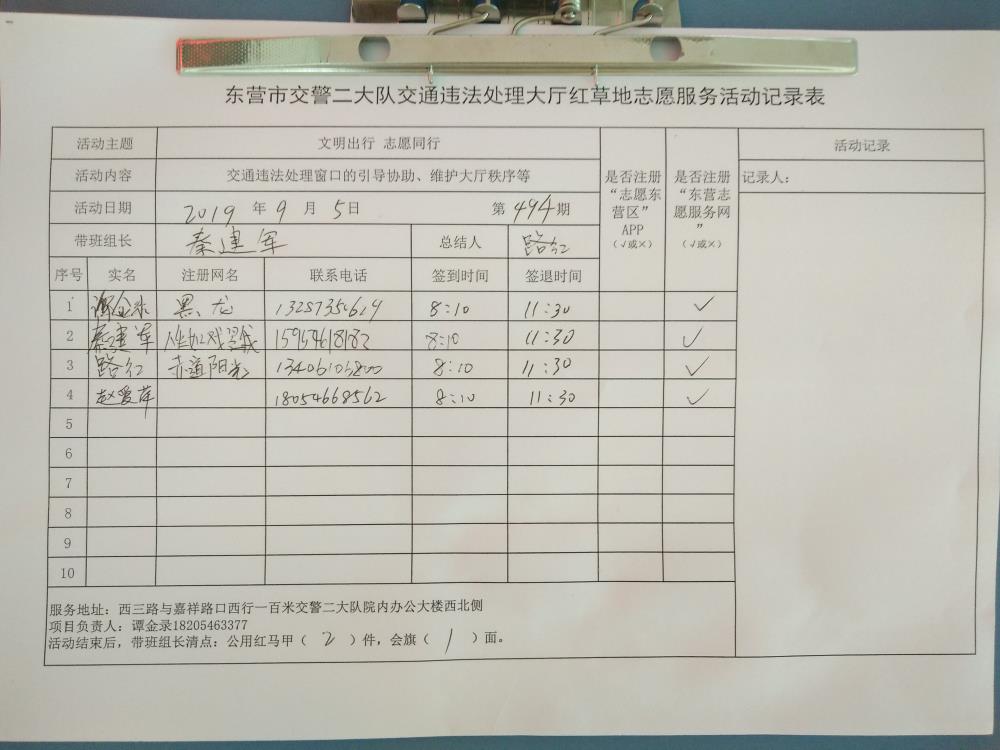 东营市交警二大队交通违法处理大厅红草地志愿服务活动记录表
活动主题 文明出行 志愿同行
活动内容 交通违法处理窗口的引导协助、维护大厅秩序等
活动日期 2019 年 9 月 5 日 第 494 期
带班组长 秦建军 总结人 路红
是否注册“志愿东营区”APP（√或×）
是否注册“东营志愿服务网”（√或×）
活动记录
记录人：
序号 实名 注册网名 联系电话 签到时间 签退时间
1 谭金录 黑龙 8:10 11:30 ✓
2 秦建军 15954618182 8:10 11:30 ✓
3 路红 赤道阳光 13406106800 8:10 11:30 ✓
4 赵爱萍 18054668562 8:10 11:30 ✓
5
6
7
8
9
10
服务地址：西三路与嘉祥路口西行一百米交警二大队院内办公大楼西北侧
项目负责人：谭金录18205463377
活动结束后，带班组长清点：公用红马甲（ 2 ）件，会旗（ 1 ）面。